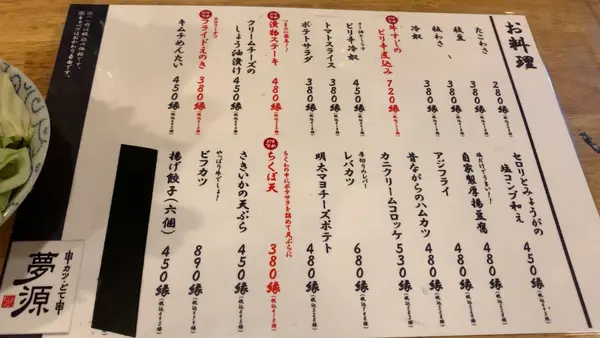 お料理
たこわさ 280縁
枝豆 380縁
板わさ 380縁
冷奴 380縁
牛すじのピリ辛煮込み 720縁
ピリ辛冷奴 450縁
トマトスライス 380縁
ポテトサラダ 380縁
漬物ステーキ 480縁
クリームチーズのしょう油漬け 450縁
フライドえのき 380縁
キムチめんたい 450縁
セロリとみょうがの塩コンブ和え 450縁
塩だけでうまい!!
自家製厚揚豆腐 480縁
アジフライ 480縁
昔ながらのハムカツ 480縁
カニクリームコロッケ 530縁
厚切りのレバー
レバカツ 680縁
明太マヨチーズポテト 480縁
ちくわの中にポテサラを詰めて天ぷらに
ちくぽ天 380縁
さきいかの天ぷら 450縁
やっぱり牛でしょ!
ビフカツ 890縁
揚げ餃子(六個) 450縁
串カツ・どて串
夢源